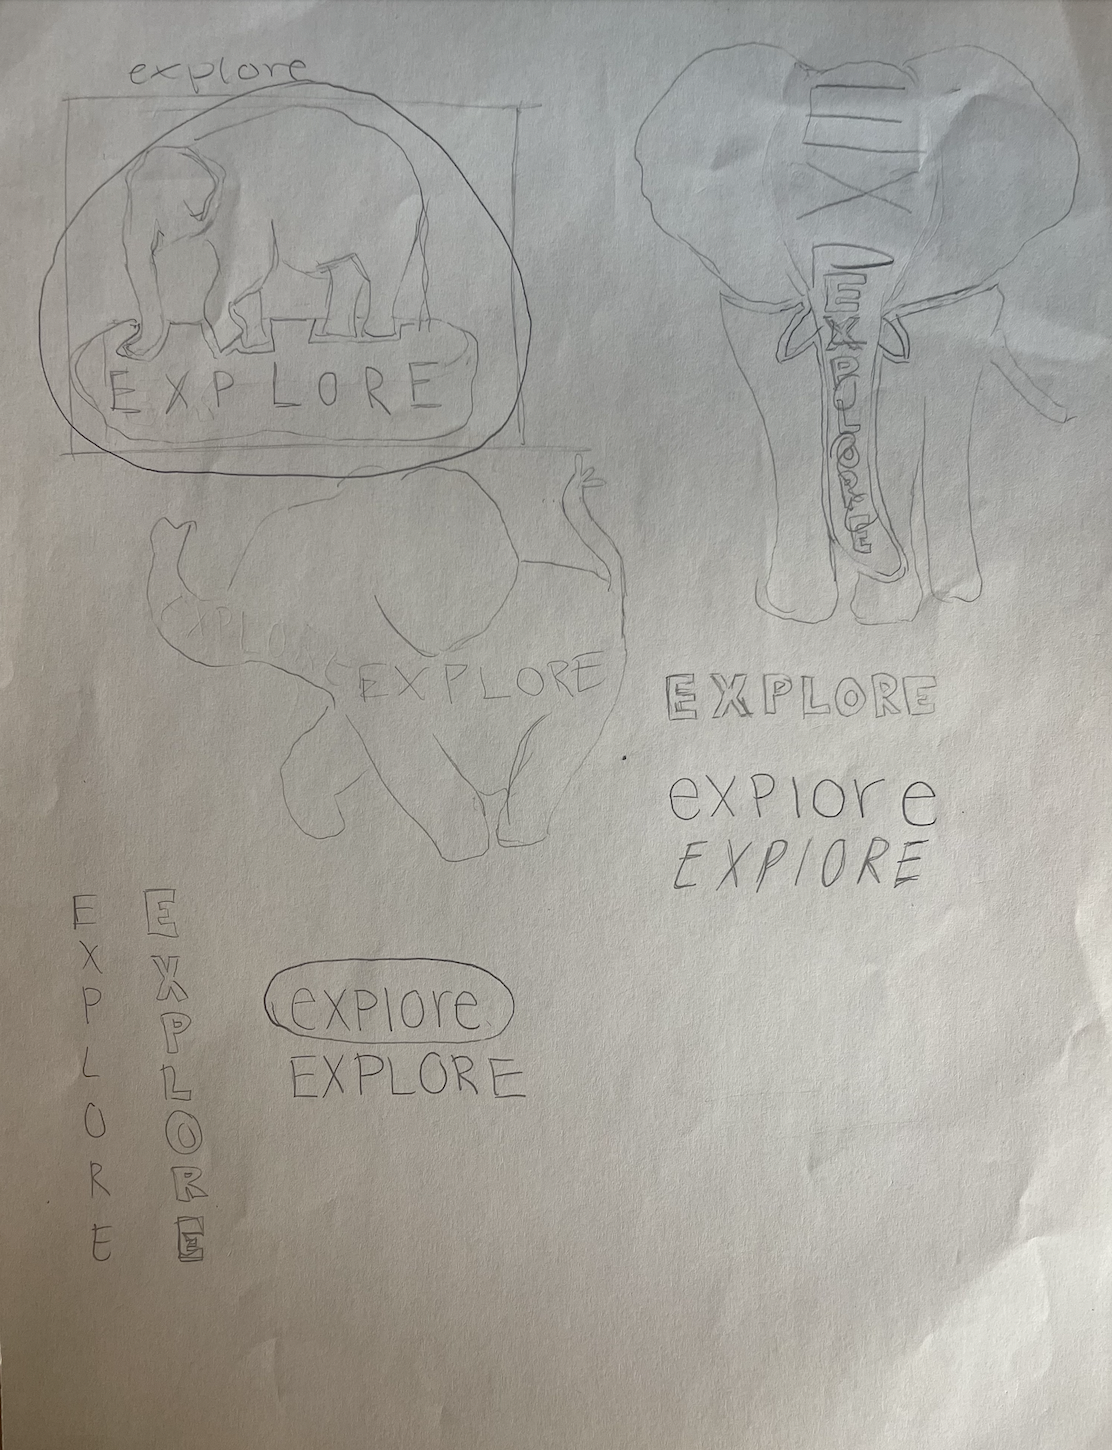 explore
EXPLORE
EXP
EXPLORE
EXPLO
EXPLORE
EXPLORE
explore
EXPlORE
EXPLORE
EXPLORE
explore
EXPLORE